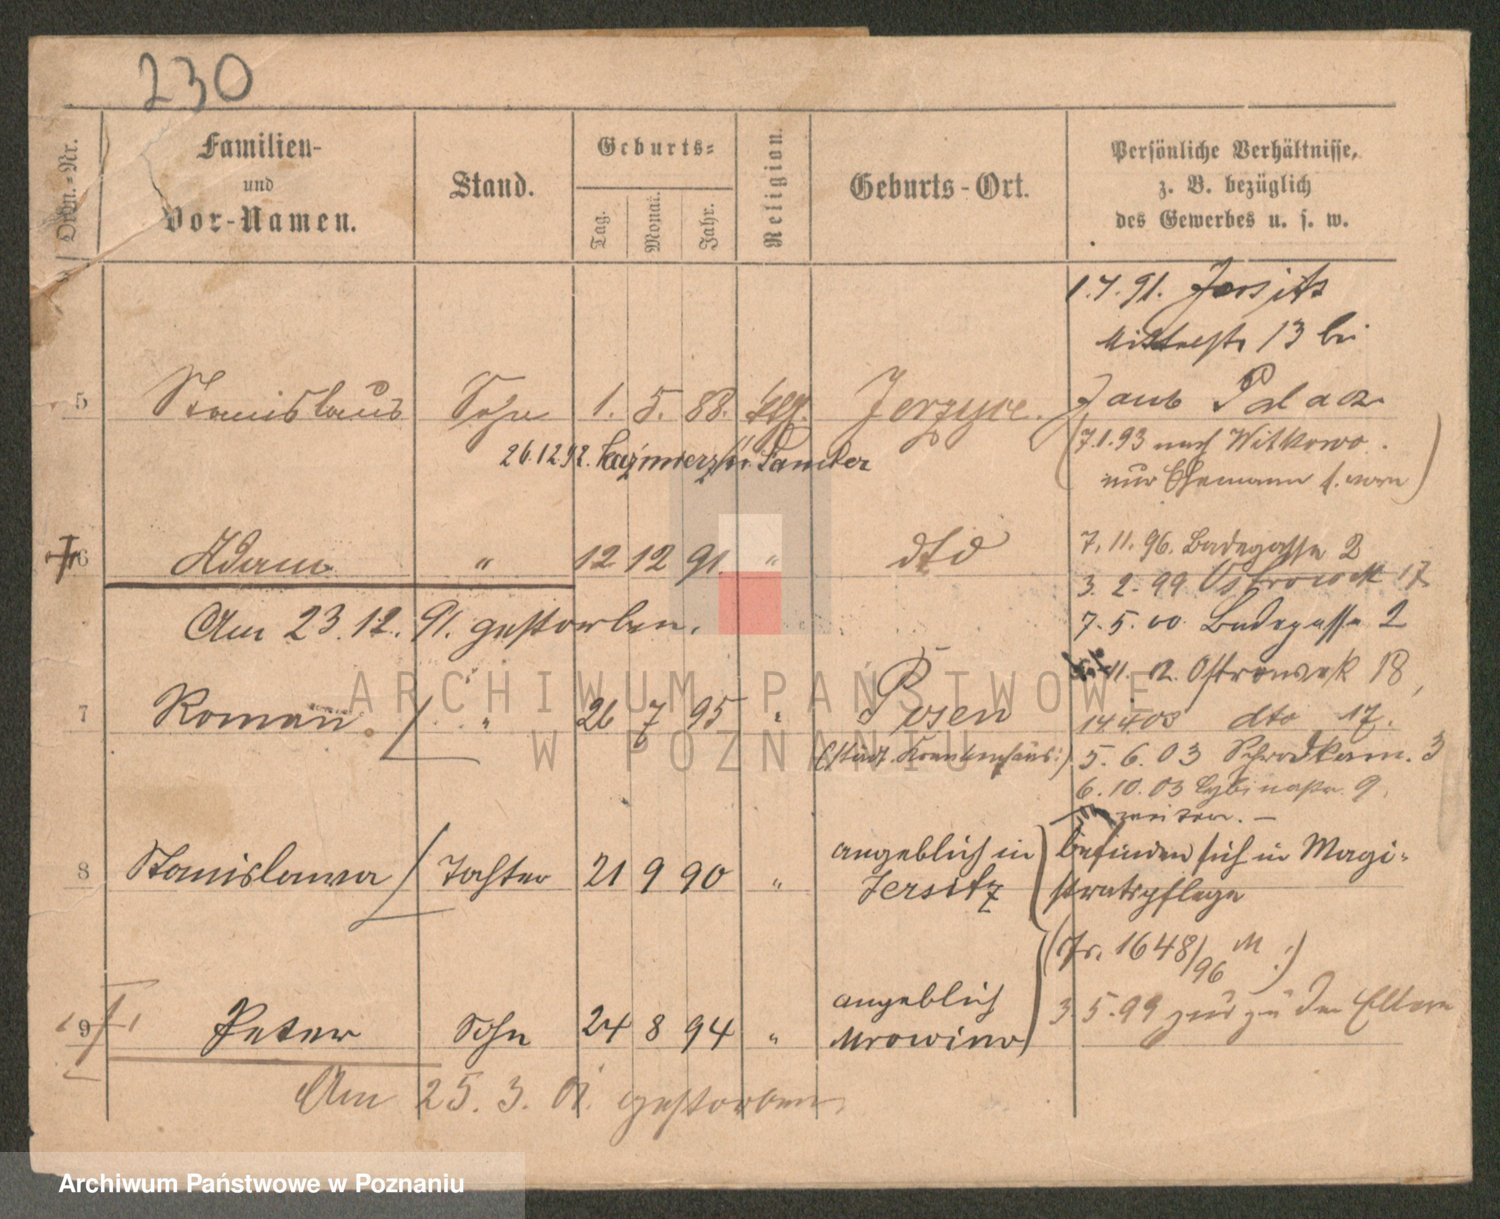 230
Ordn.-Nr.
Familien-
und
Vor-Namen.
Stand.
Geburts-
Tag.
Monat.
Jahr.
Religion.
Geburts-Ort.
Persönliche Verhältnisse,
z. B. bezüglich
des Gewerbes u. s. w.
1.7.91. Jersitz
13 bei
5 Stanislaus Sohn 1. 5. 88. Jerzyce.
7.1.93 nach Witkowo.
nur Ehemann s. vorn
26.12.92. Kazimierz Samter
6 Adam " 12 12 91. " dto
7.11.96. Badegasse 2
3. 2. 99 Ostrowek 17
Am 23.12.91. gestorben.
7.5.00. Badegasse 2
11. 02. Ostrowek 18,
7 Roman " 26 7 95 " Posen
(städt. Krankenhaus:)
14 4 03 dto 17.
5. 6. 03 Schrodkam. 3
6.10.03 9.
8 Stanislawa Tochter 21 9 90 " angeblich in
Jersitz
befinden sich in Magi-
stratspflege
(Js. 1648/96 M.)
9 Peter Sohn 24 8 94 " angeblich
Mrowino
3.5.99 zur. zu den Eltern
Am 25. 3. 01. gestorben.
ARCHIWUM PAŃSTWOWE
W POZNANIU
Archiwum Państwowe w Poznaniu